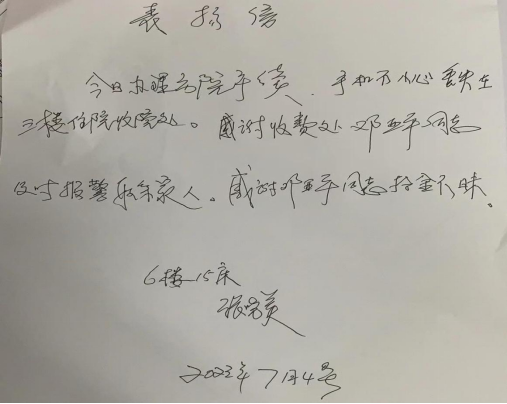 表扬信
今日办理出院手续，手机不小心丢失在
三楼住院收院处。感谢收费处邓亚平同志
及时报警联系家人。感谢邓亚平同志拾金不昧。
6楼15床
张
2022年7月4号